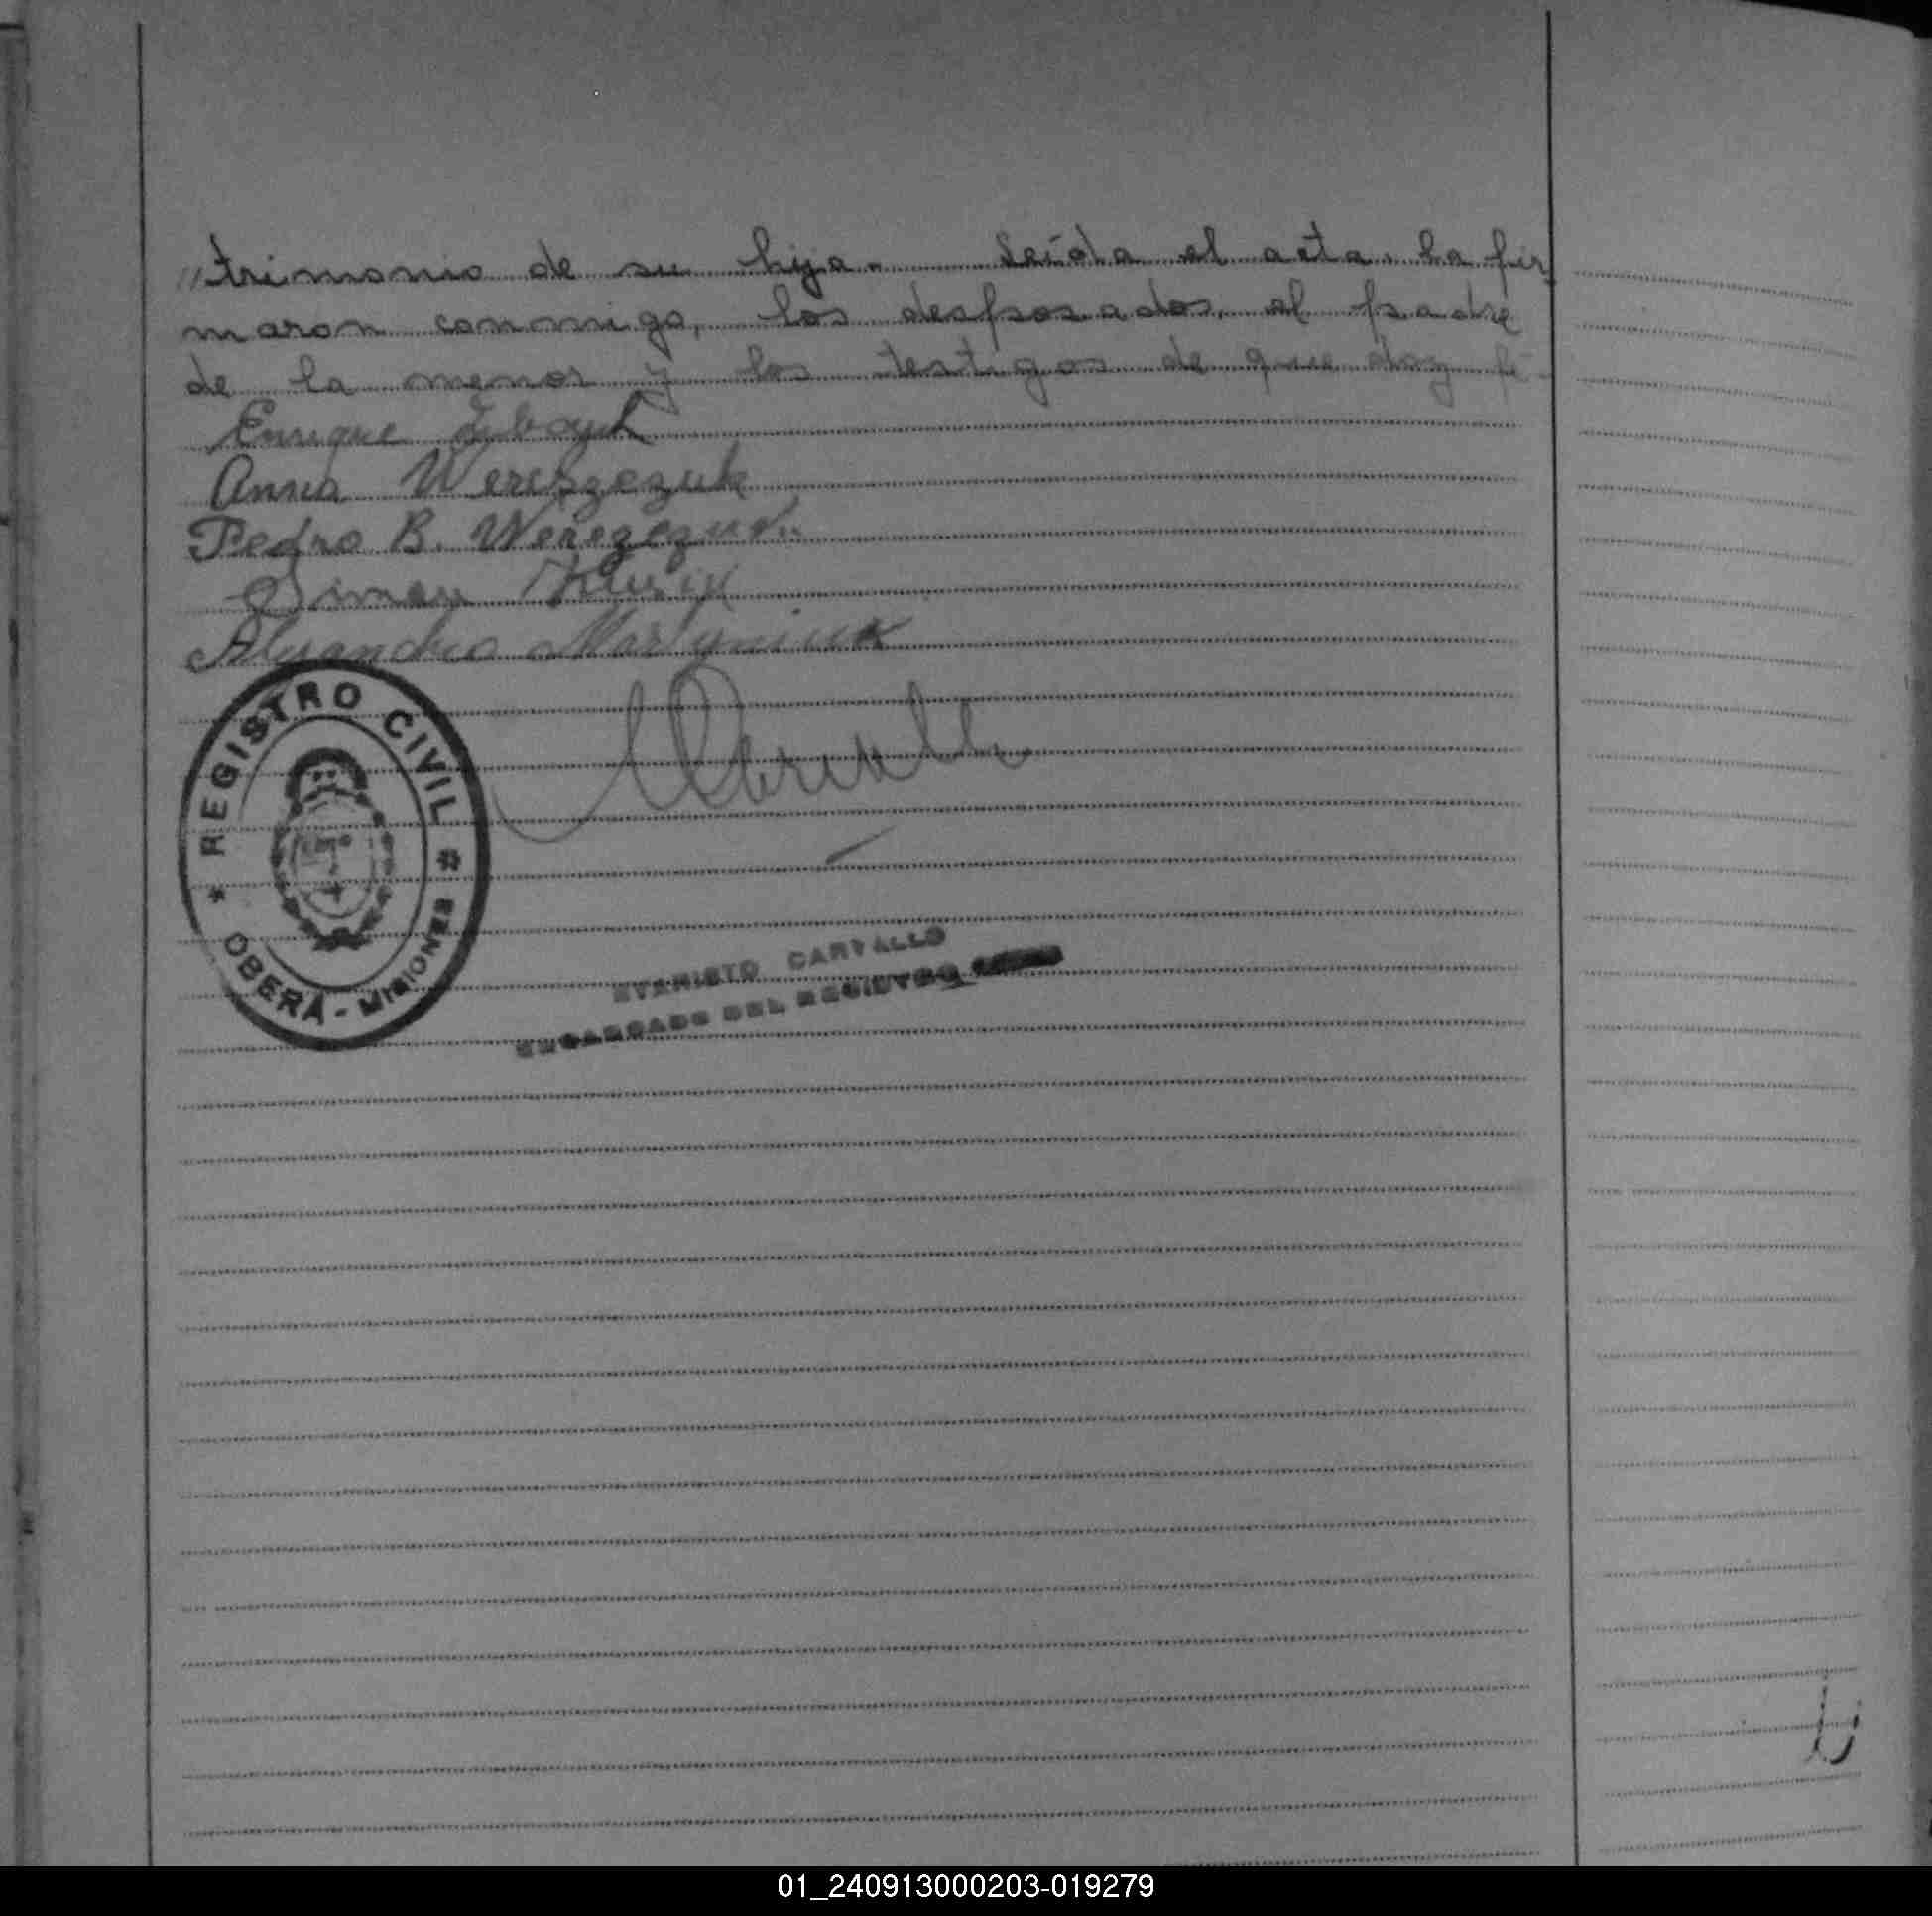 "trimonio de su hija.- Leída el acta, la fir
maron conmigo, los desposados, el padre
de la menor y los testigos de que doy fé.-
Enrique
Anna Wereszczuk
Pedro B. Werezczuk
Simon
Alejandro Martyniuk
REGISTRO CIVIL
OBERÁ - MISIONES
EVARISTO CARVALLO
ENCARGADO DEL REGISTRO
01_240913000203-019279